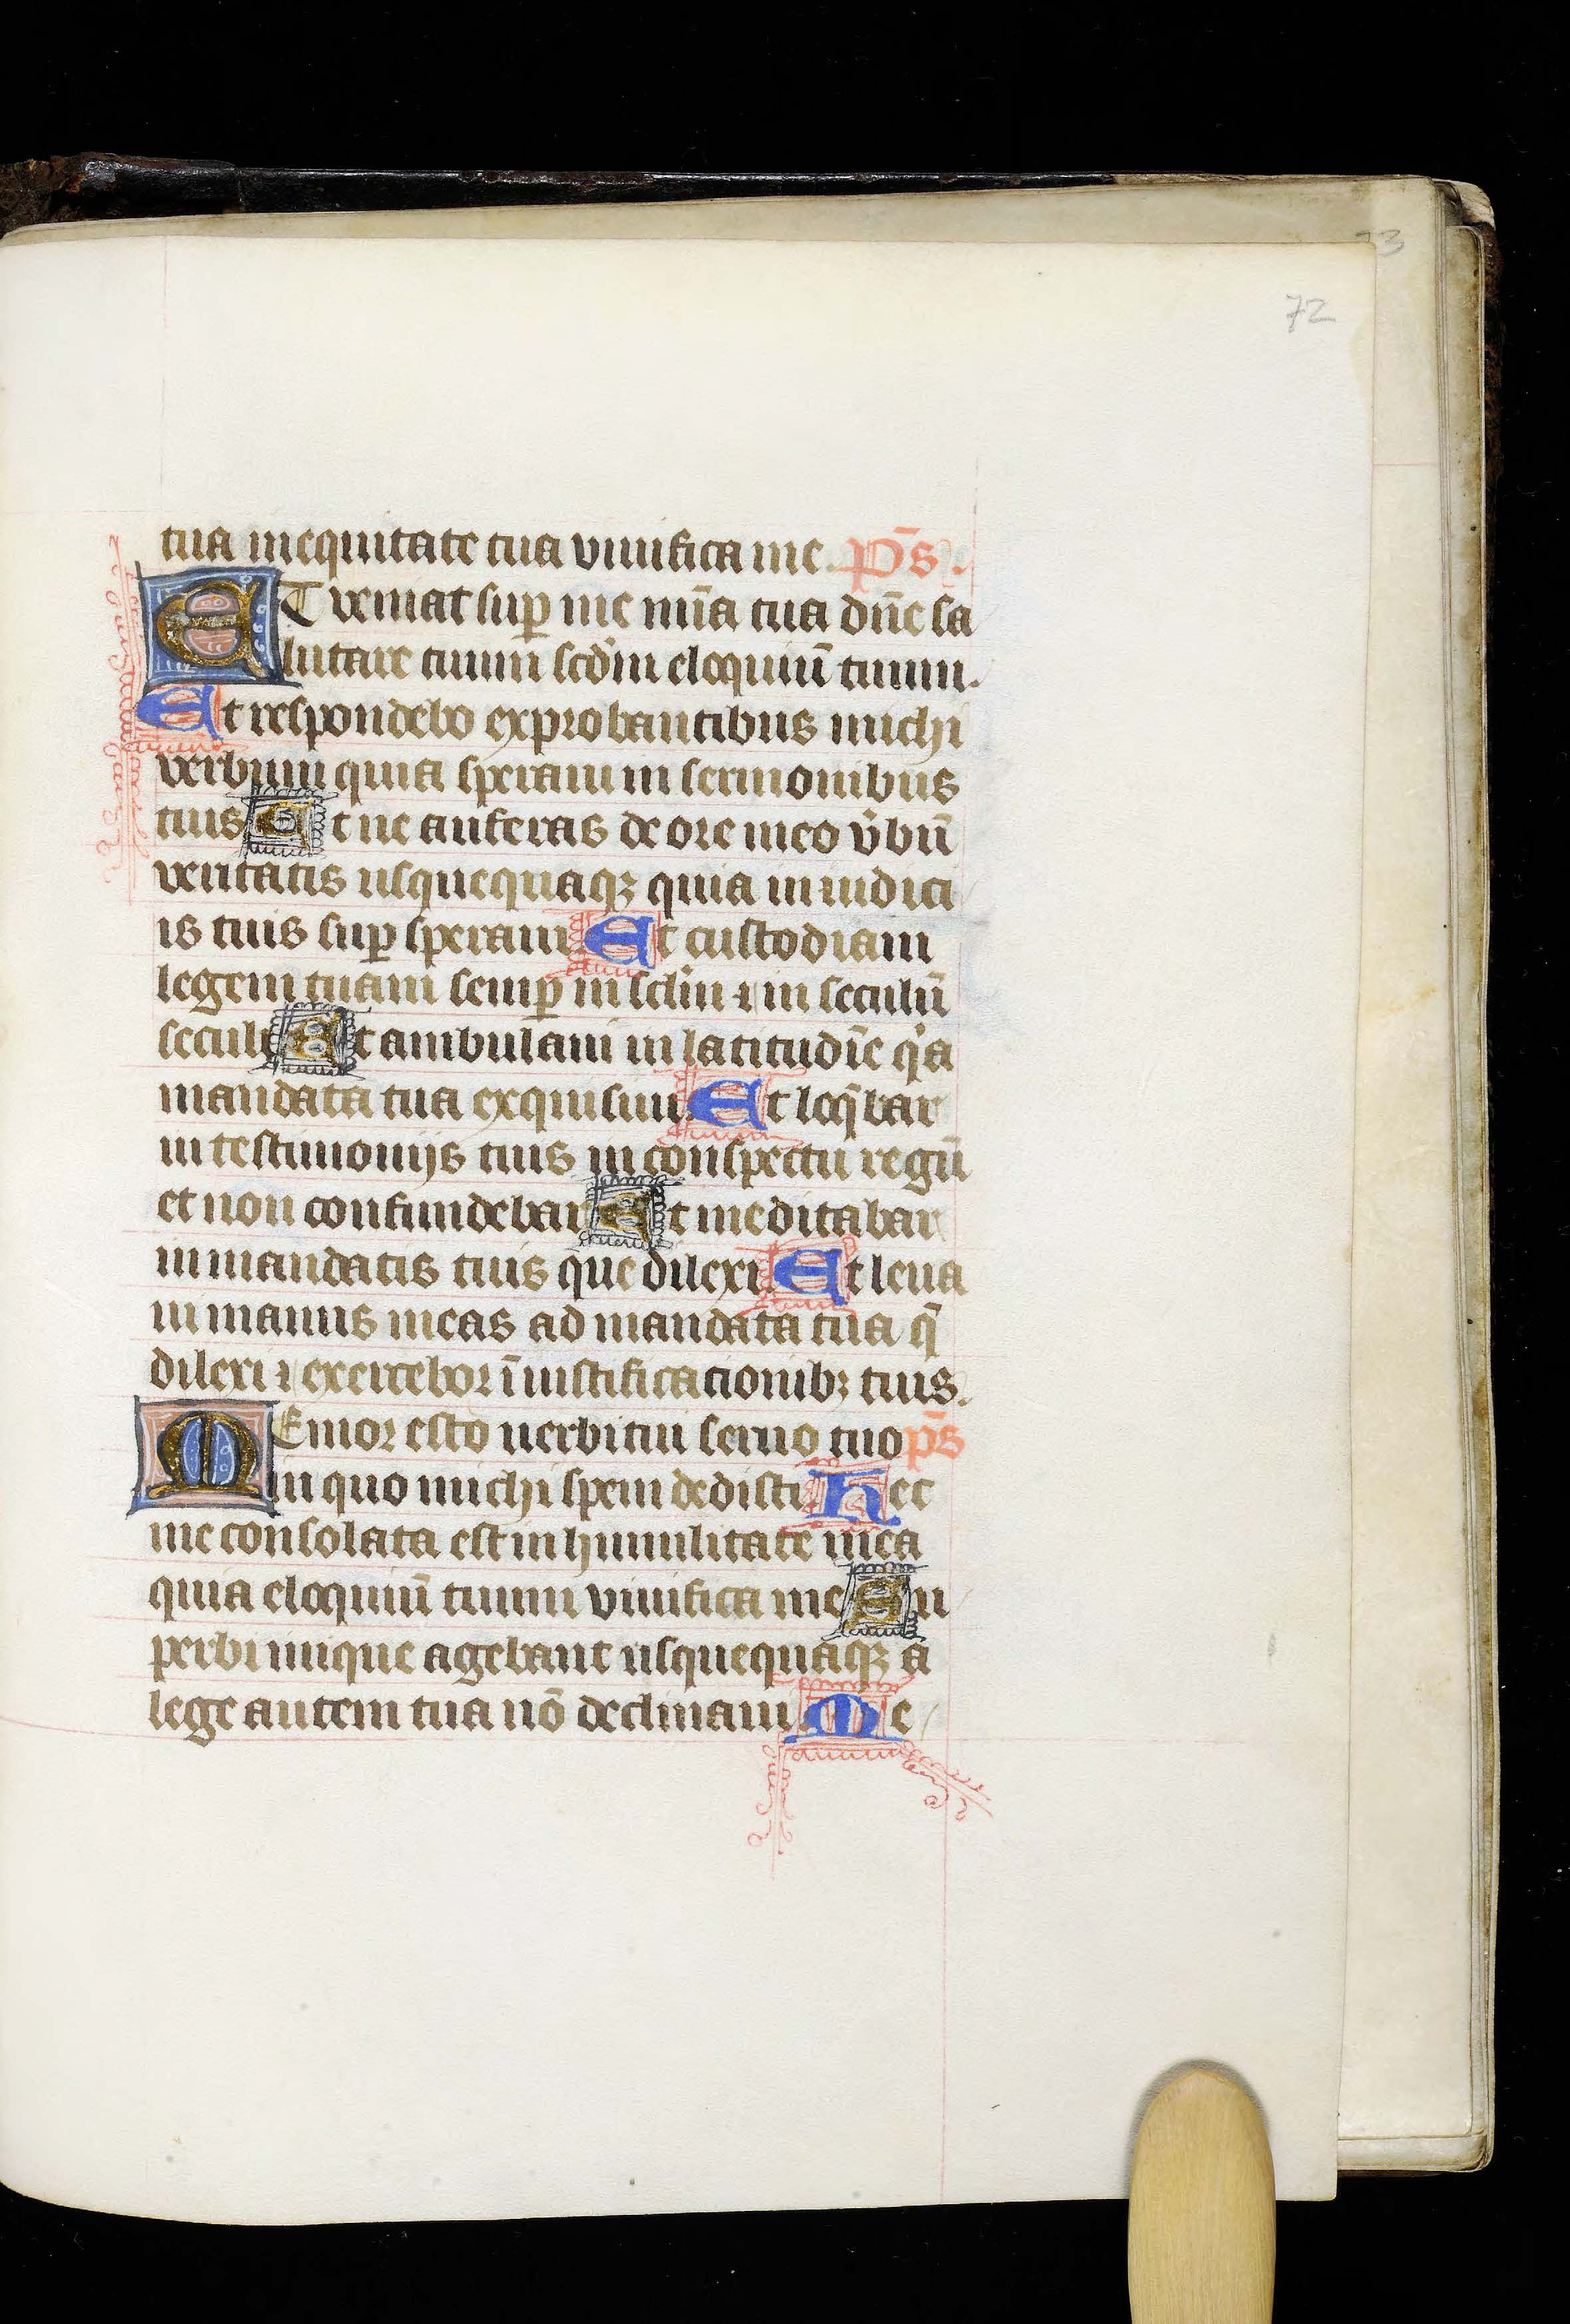 73
72
tua in equitate tua viuifica me. p̄s.
ET veniat sup̱ me mīa tua dn̄e sa
lutare tuum̄ scd̄m eloquiū tuum.
Et respondebo exprobantibus michi
verbum quia speraui in sermonibus
tuis Et ne auferas de ore meo v̾bū
veritatis usquequaqꝫ quia in iudici
is tuis sup̱ speraui Et custodiam
legem tuam semp̱ in sc̄lm ⁊ in seculū
seculi Et ambulam in latitudīe qͥa
mandata tua exquisiui Et loq̄bar
in testimonijs tuis in conspectu regū
et non confundebar Et meditabar
in mandatis tuis que dilexi Et leua
ui manus meas ad mandata tua q̄
dilexi ⁊ exercebor ī iustificacionibꝫ tuis.
MEmor esto uerbi tui seruo tuo p̄s
in quo michi spem dedisti Hec
me consolata est in humilitate mea
quia eloquiū tuum viuifica me Su
perbi inique agebant usquequaqꝫ a
lege autem tua nō declinaui Me